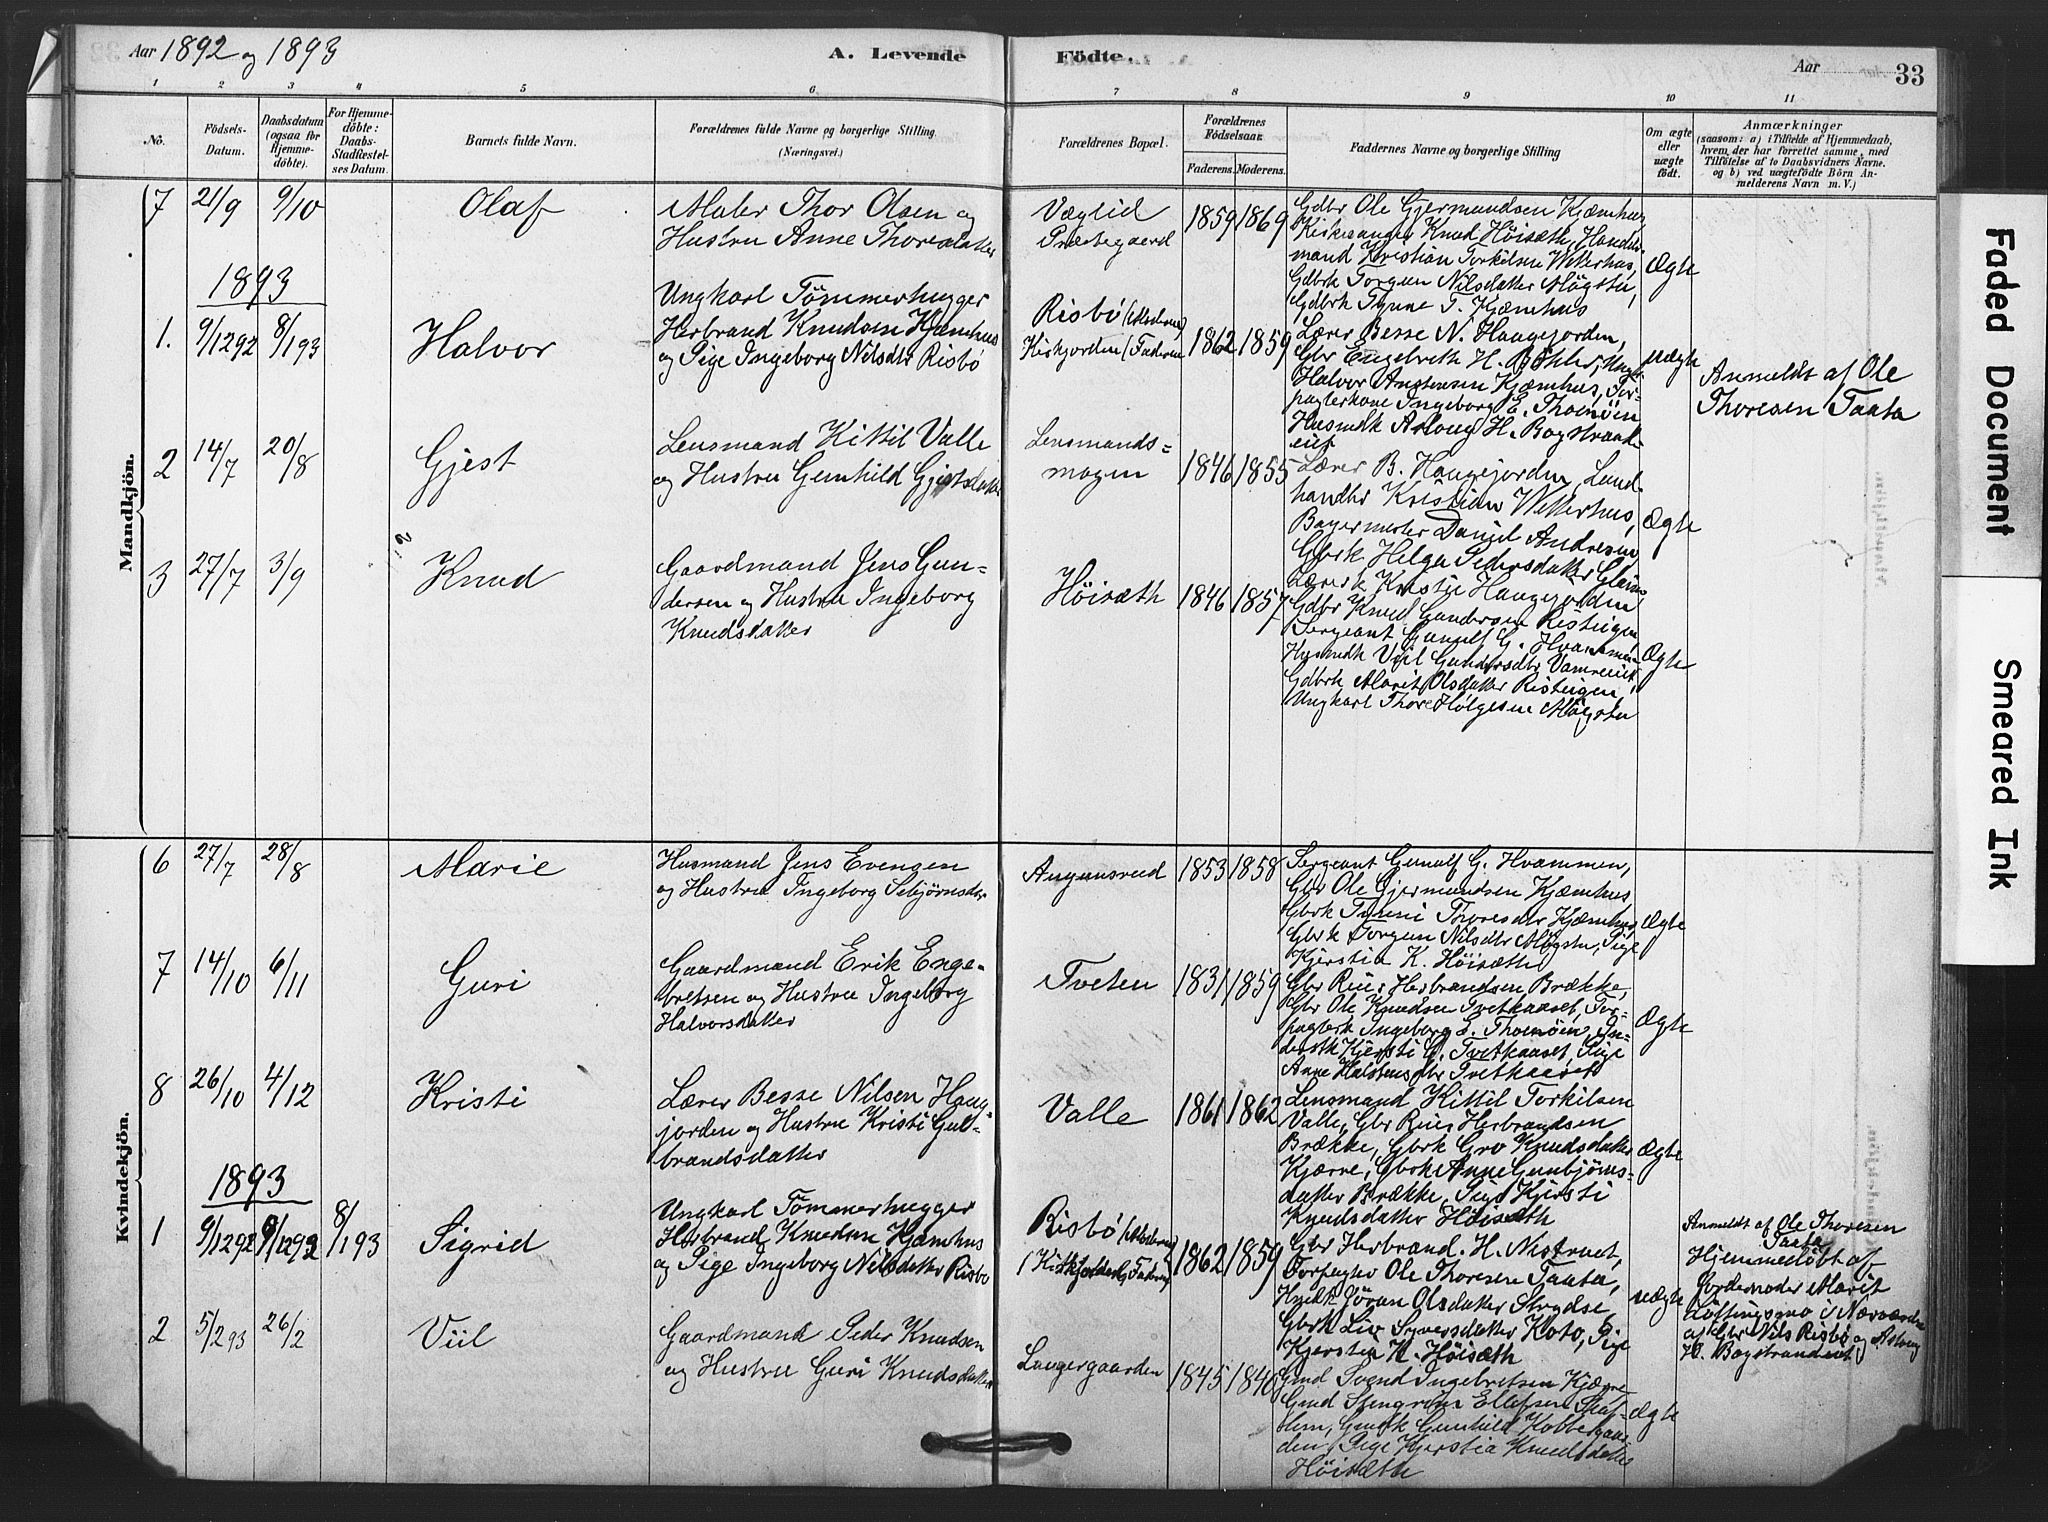 Aar 1892 og 1893
A. Levende Födte.
Aar
33
1 2 3 4 5 6 7 8 9 10 11
No.
Födsels-
Datum.
Daabsdatum
(ogsaa for
Hjemme-
döbte).
For Hjemme-
döbte:
Daabs-
Stadfæstel-
ses Datum.
Barnets fulde Navn.
Forældrenes fulde Navne og borgerlige Stilling.
(Næringsvei.)
Forældrenes Bopæl.
Forældrenes
Födselsaar.
Faderens. Moderens.
Faddernes Navne og borgerlige Stilling
Om ægte
eller
uægte
födt.
Anmærkninger
(saasom: a) i Tilfælde af Hjemmedaab,
hvem der har forrettet samme, med
Tilföielse af to Daabsvidners Navne.
og b) ved uægtefödte Börn An-
melderens Navn m. V.)
Mandkjön.
7 21/9 9/10 Olaf
Maler Thor Olsen og
Hustru Anne Thoresdatter
Væglid
Præstegaard
1859 1869
Gdbr Ole Gjermundsen Kjæmhus,
Kirkesanger Knud Höisæth, Handels-
mand Kristian Torkilsen Wetterhus,
Gdbrk Torgun Nilsdatter Mögstu,
Gdbrk Tynne T. Kjæmhus
Ægte
1893
1. 9/12 92 8/1 93 Halvor
Ungkarl Tömmerhugger
Herbrand Knudsen Kjæmhus
og Pige Ingeborg Nilsdtr Risbö
Risbö (Moderen)
Kirkjorden (Faderen
1862 1859
Lærer Besse N. Haugejorden,
Gbr Engebreth H. Böhler, Ungk
Halvor Anstensen Kjæmhus, For-
pagterkone Ingeborg E. Thomöin
Husmdk Aslaug H. Bogstrand-
eiet
uægte
Anmeldt af Ole
Thoresen Taata
2 14/7 20/8 Gjest
Lensmand Kittil Valle
og Hustru Gunhild Gjestsdatter
Lensmands-
mogen
1846 1855
Lærer B. Haugejorden, Land-
handler Kristian Wetterhus,
Bagermester Daniel Andresen
Gbrk Helga Pedersdatter
Lærerk Kristie Haugejorden
Ægte
3 27/7 3/9 Knud
Gaardmand Jens Gun-
dersen og Hustru Ingeborg
Knudsdatter
Höisæth
1846 1857
Gdbr Knud Gundersen Risteigen
Sergeant Gunulf G. Hvammen
Husmdk Viil Gundersdtr
Gdbrk Marit Olsdatter Risteigen,
Ungkarl Thore Helgesen Mögstu
Ægte
Kvindekjön.
6 27/7 28/8 Marie
Husmand Jens Evensen
og Hustru Ingeborg Sebjörnsdtr
Angunsrud
1853 1858
Sergeant Gunulf G. Hvammen,
Gbr Ole Gjermundsen Kjæmhus,
Gbrk Tynni Thoresdtr Kjæmhus,
Gbrk Torgun Nilsdtr Mögstu, Pige
Kjerstia K. Höisæth
Ægte
7 14/10 6/11 Guri
Gaardmand Erik Enge-
bretsen og Hustru Ingeborg
Halvorsdatter
Tveten
1831 1859
Gbr Rius Herbrandsen Brække,
Gbr Ole Knudsen Tvetkaaset, For-
pagterk Ingeborg E. Thomöin, In-
derstk Kjersti G. Tvetkaaset, Pige
Anne Halstensdtr Tvetkaaset
Ægte
8 26/10 4/12 Kristi
Lærer Besse Nilsen Haug-
jorden og Hustru Kristi Gul-
brandsdatter
Valle
1861 1862
Lensmand Kittil Torkilsen
Valle, Gbr Rius Herbrandsen
Brække, Gbrk Gro Knudsdatter
Kjærre, Gbrk Anne Gunbjörns-
datter Brække, Pige Kjersti
Knudsdatter Höisæth
Ægte
1893
1 9/12 92 9/12 92 8/1 93 Sigrid
Ungkarl Tömmerhugger
Herbrand Knudsen Kjæmhus
og Pige Ingeborg Nilsdatter Risbö
Risbö (Moderen)
(Kirkjorden, Faderen)
1862 1859
Gbr Herbrand H. Nistruet,
Forpagter Ole Thoresen Taata,
Husmdk Jöran Olsdatter
Gbrk Liv Syversdatter Koto, Pige
Kjerstia K. Höisæth
uægte
Anmeldt af Ole Thoresen
Taata
Hjemmedöbt af
Jordemoder Marit
i Nærværelse
af Gbr Nils Risbö og Aslaug
H. Bogstrandeiet
2 5/2 93 26/2 Viil
Gaardmand Peder Knudsen
og Hustru Guri Knudsdatter
Laugergaarden
1845 1846
Gmd Svend Ingebretsen Kjærre
Gmd Stengrim Ellefsen
Gmdk Gunhild Kobbergaar-
den, Pige Kjerstia Knudsdatter
Höisæth
Ægte
Faded Document
Smeared Ink